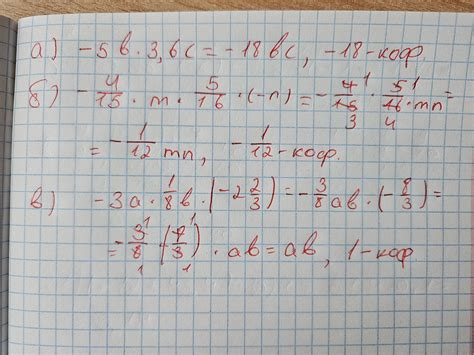 а) -5в·3,6с = -18вс, -18-коф.
б) -4/15 · m · 5/16 · (-n) = -4¹/15₃ · 5¹/16₄ · mn =
= -1/12 mn, -1/12 - коф.
в) -3а · 1/8 в · (-2 2/3) = -3/8 ав · (-8/3) =
= -3¹/8₁ · (-8¹/3₁) · ав = ав, 1-коф